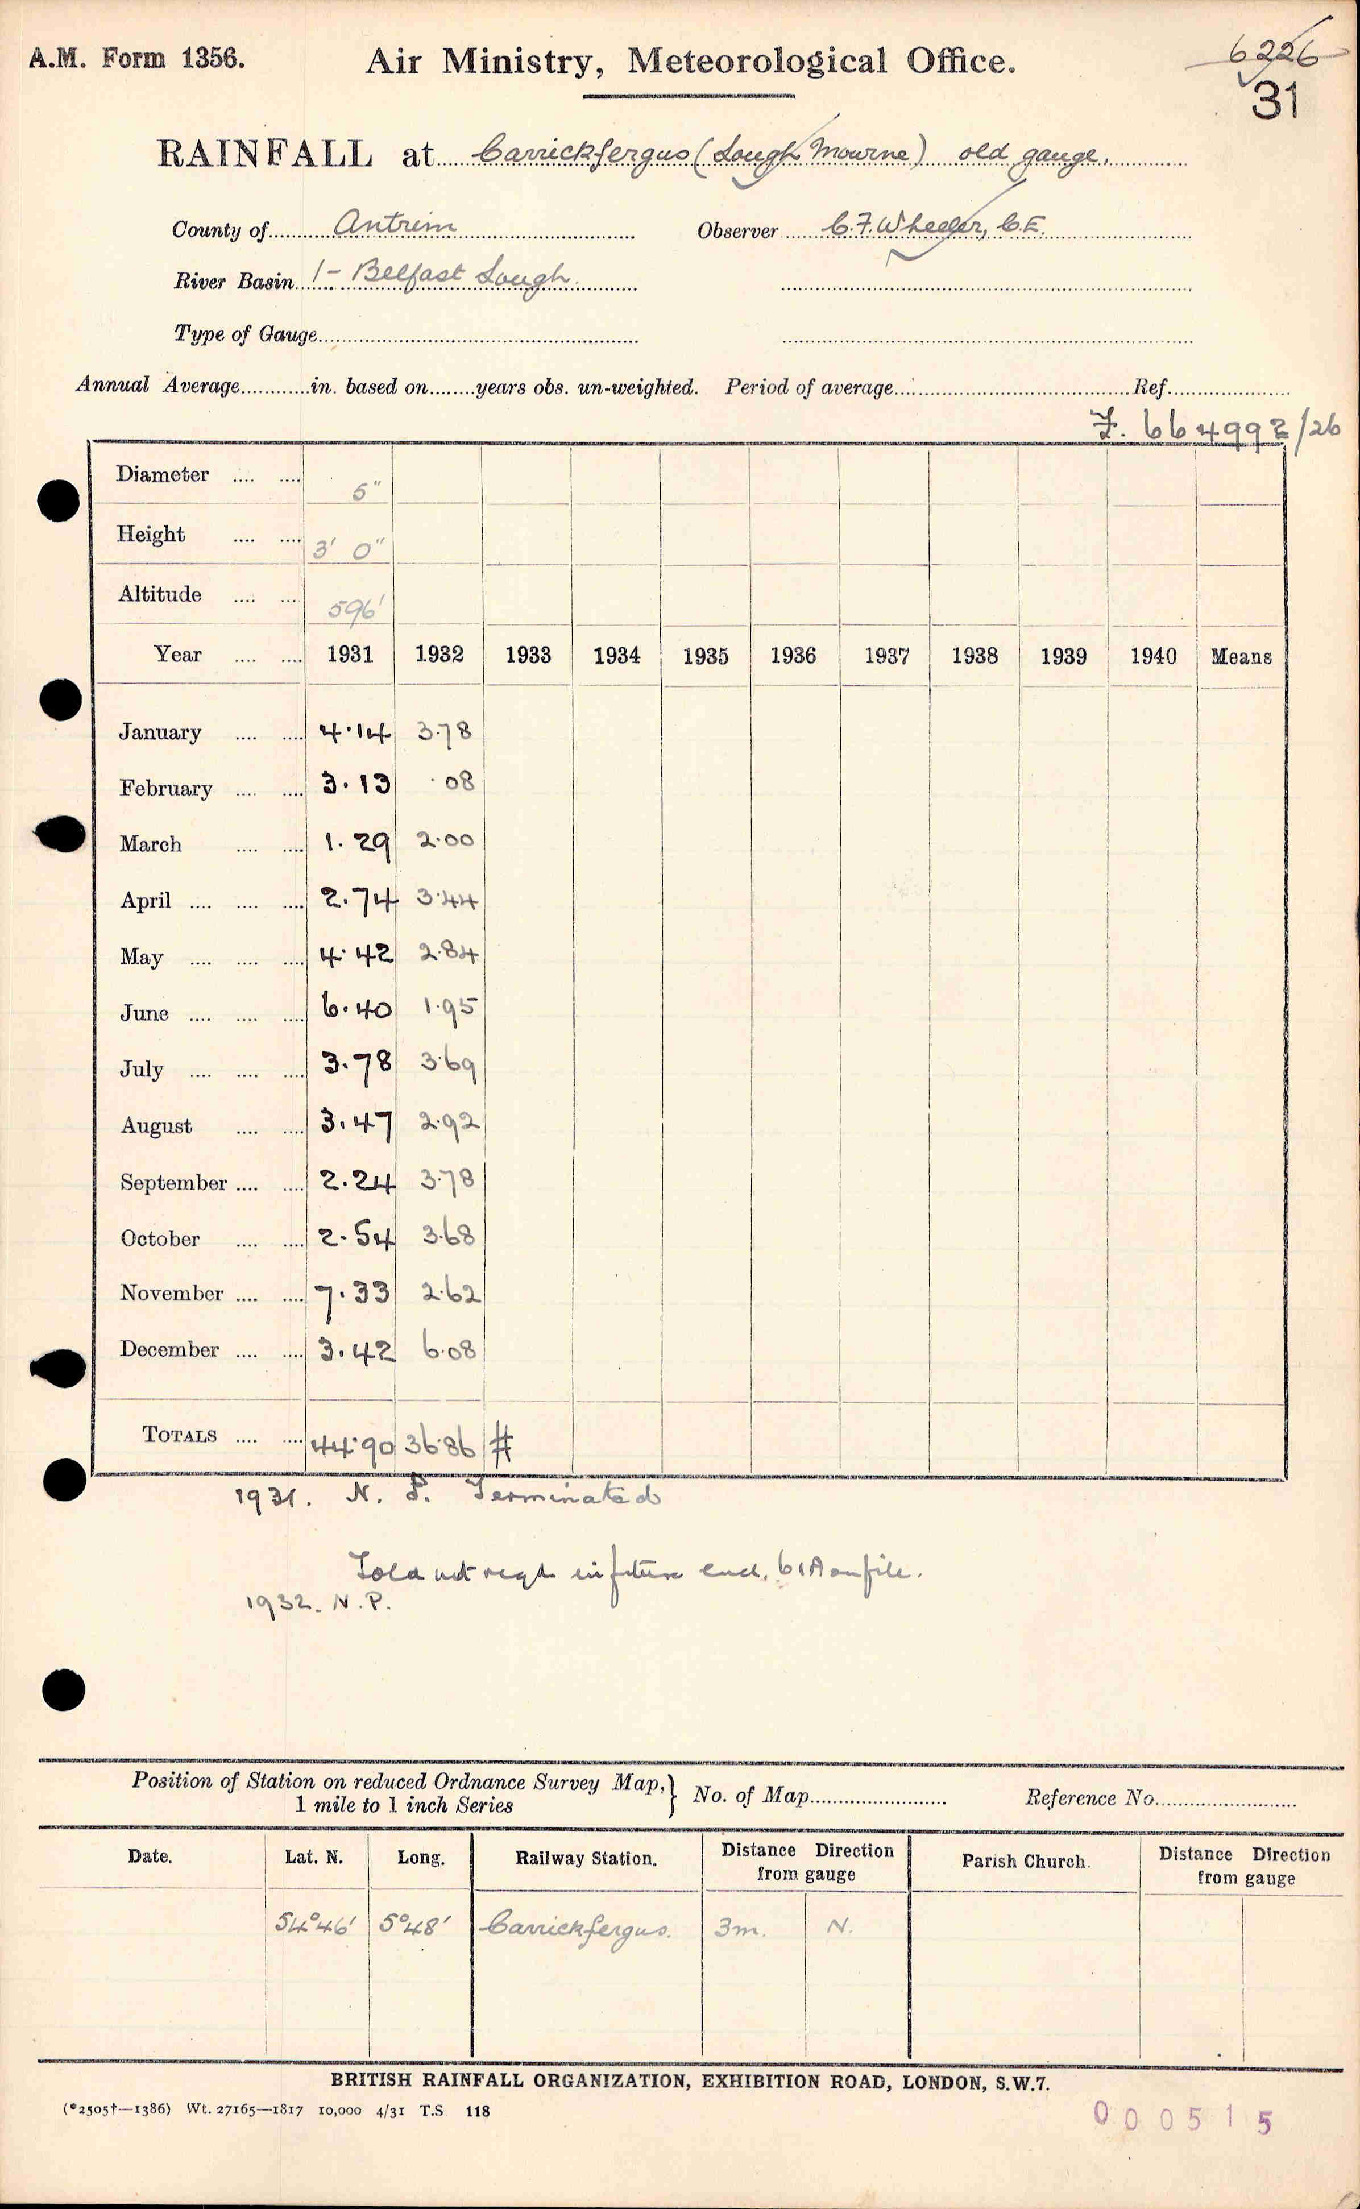 A.M. Form 1356.
Air Ministry, Meteorological Office.
6226
31
RAINFALL at Carrickfergus (Lough Mourne) old gauge.
County of Antrim Observer C.F. Wheeler, C.E.
River Basin 1 - Belfast Lough.
Type of Gauge
Annual Average in. based on years obs. un-weighted. Period of average Ref.
/26
Diameter 5"
Height 3' 0"
Altitude 596'
Year 1931 1932 1933 1934 1935 1936 1937 1938 1939 1940 Means
January 4.14 3.78
February 3.13 .08
March 1.29 2.00
April 2.74 3.44
May 4.42 2.84
June 6.40 1.95
July 3.78 3.69
August 3.47 2.92
September 2.24 3.78
October 2.54 3.68
November 7.33 2.62
December 3.42 6.08
TOTALS 44.90 36.86 #
1931. N. P. Terminated
Told not reqd in future encl. 61A on file.
1932. N.P.
Position of Station on reduced Ordnance Survey Map, } No. of Map Reference No.
1 mile to 1 inch Series
Date. Lat. N. Long. Railway Station. Distance Direction from gauge Parish Church. Distance Direction from gauge
54°46' 5°48' Carrickfergus. 3m. N.
BRITISH RAINFALL ORGANIZATION, EXHIBITION ROAD, LONDON, S.W.7.
(*2505†—1386) Wt. 27165—1817 10,000 4/31 T.S 118
000515